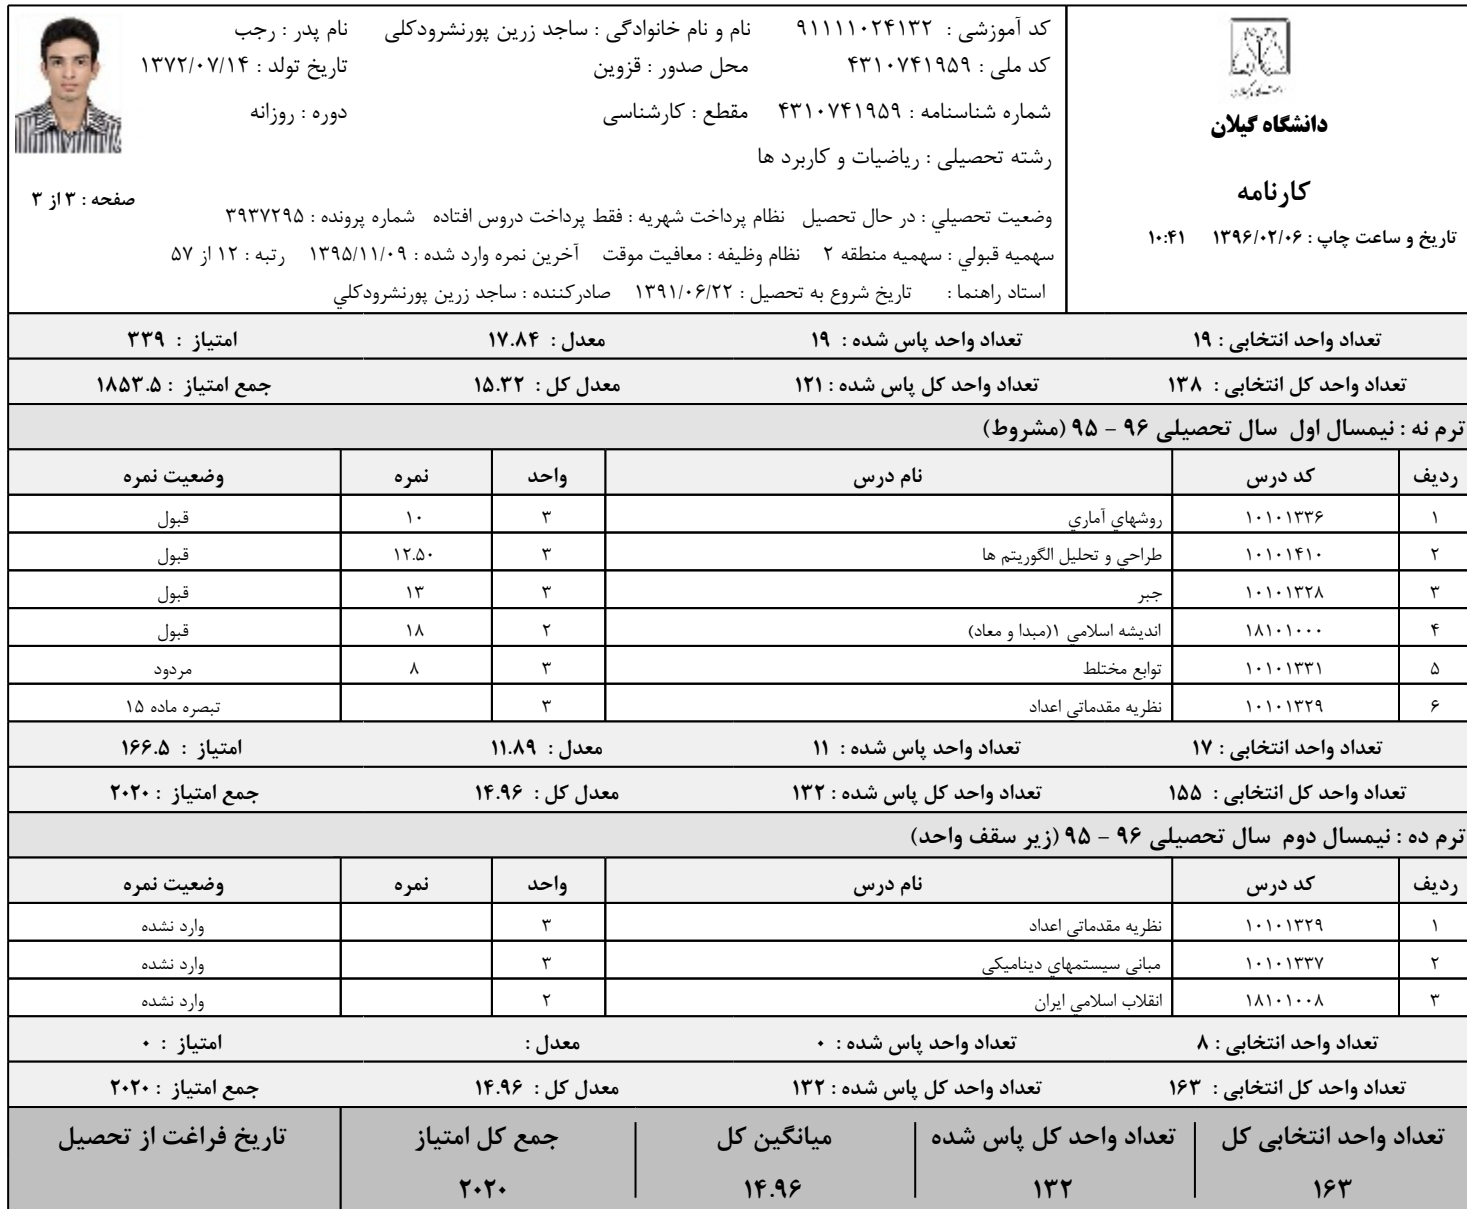 دانشگاه گیلان
کارنامه
تاریخ و ساعت چاپ : ۱۳۹۶/۰۲/۰۶ ۱۰:۴۱
کد آموزشی : ۹۱۱۱۱۰۲۴۱۳۲ نام و نام خانوادگی : ساجد زرین پورنشرودکلی نام پدر : رجب
کد ملی : ۴۳۱۰۷۴۱۹۵۹ محل صدور : قزوین تاریخ تولد : ۱۳۷۲/۰۷/۱۴
شماره شناسنامه : ۴۳۱۰۷۴۱۹۵۹ مقطع : کارشناسی دوره : روزانه
رشته تحصیلی : ریاضیات و کاربرد ها
صفحه : ۳ از ۳
وضعیت تحصیلي : در حال تحصیل نظام پرداخت شهریه : فقط پرداخت دروس افتاده شماره پرونده : ۳۹۳۷۲۹۵
سهمیه قبولي : سهمیه منطقه ۲ نظام وظیفه : معافیت موقت آخرین نمره وارد شده : ۱۳۹۵/۱۱/۰۹ رتبه : ۱۲ از ۵۷
استاد راهنما : تاریخ شروع به تحصیل : ۱۳۹۱/۰۶/۲۲ صادرکننده : ساجد زرین پورنشرودکلي
تعداد واحد انتخابی : ۱۹ تعداد واحد پاس شده : ۱۹ معدل : ۱۷.۸۴ امتیاز : ۳۳۹
تعداد واحد کل انتخابی : ۱۳۸ تعداد واحد کل پاس شده : ۱۲۱ معدل کل : ۱۵.۳۲ جمع امتیاز : ۱۸۵۳.۵
ترم نه : نیمسال اول سال تحصیلی ۹۶ - ۹۵ (مشروط)
ردیف کد درس نام درس واحد نمره وضعیت نمره
۱ ۱۰۱۰۱۳۳۶ روشهاي آماري ۳ ۱۰ قبول
۲ ۱۰۱۰۱۴۱۰ طراحي و تحلیل الگوریتم ها ۳ ۱۲.۵۰ قبول
۳ ۱۰۱۰۱۳۲۸ جبر ۳ ۱۳ قبول
۴ ۱۸۱۰۱۰۰۰ اندیشه اسلامي ۱(مبدا و معاد) ۲ ۱۸ قبول
۵ ۱۰۱۰۱۳۳۱ توابع مختلط ۳ ۸ مردود
۶ ۱۰۱۰۱۳۲۹ نظریه مقدماتی اعداد ۳ تبصره ماده ۱۵
تعداد واحد انتخابی : ۱۷ تعداد واحد پاس شده : ۱۱ معدل : ۱۱.۸۹ امتیاز : ۱۶۶.۵
تعداد واحد کل انتخابی : ۱۵۵ تعداد واحد کل پاس شده : ۱۳۲ معدل کل : ۱۴.۹۶ جمع امتیاز : ۲۰۲۰
ترم ده : نیمسال دوم سال تحصیلی ۹۶ - ۹۵ (زیر سقف واحد)
ردیف کد درس نام درس واحد نمره وضعیت نمره
۱ ۱۰۱۰۱۳۲۹ نظریه مقدماتی اعداد ۳ وارد نشده
۲ ۱۰۱۰۱۳۳۷ مبانی سیستمهاي دینامیکی ۳ وارد نشده
۳ ۱۸۱۰۱۰۰۸ انقلاب اسلامي ایران ۲ وارد نشده
تعداد واحد انتخابی : ۸ تعداد واحد پاس شده : ۰ معدل : امتیاز : ۰
تعداد واحد کل انتخابی : ۱۶۳ تعداد واحد کل پاس شده : ۱۳۲ معدل کل : ۱۴.۹۶ جمع امتیاز : ۲۰۲۰
تعداد واحد انتخابی کل تعداد واحد کل پاس شده میانگین کل جمع کل امتیاز تاریخ فراغت از تحصیل
۱۶۳ ۱۳۲ ۱۴.۹۶ ۲۰۲۰